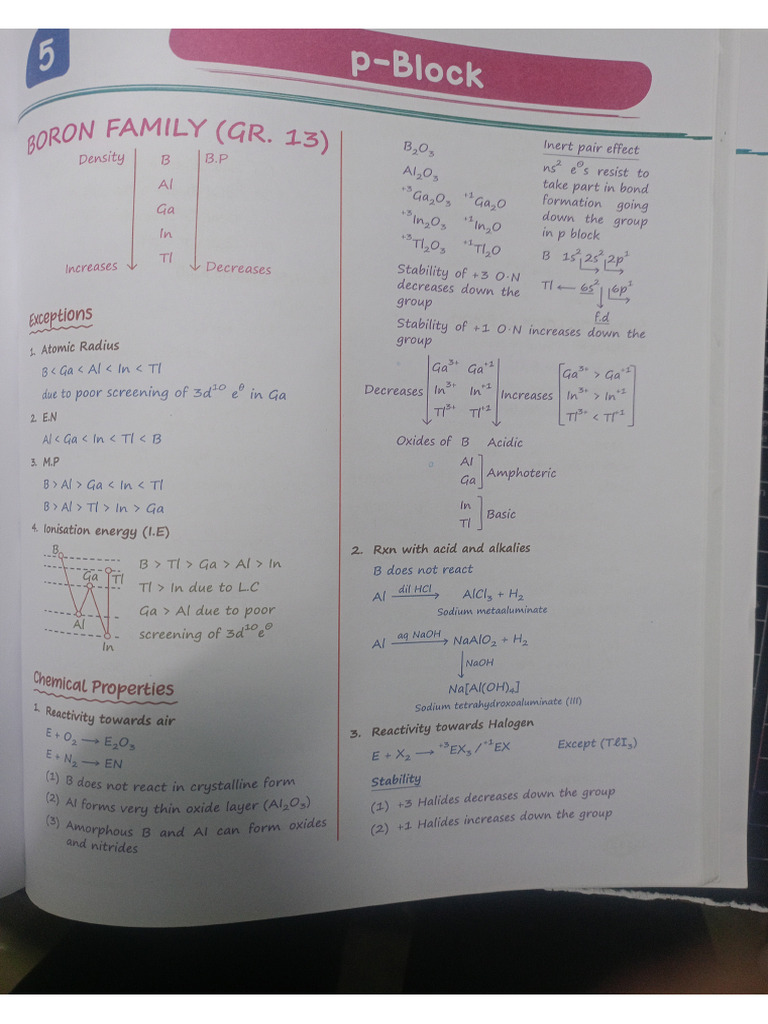 5
p-Block
BORON FAMILY (GR. 13)
Density B B.P
Al
Ga
In
Tl
Increases Decreases
Exceptions
1. Atomic Radius
B < Ga < Al < In < Tl
due to poor screening of 3d¹⁰ e⁻ in Ga
2. E.N
Al < Ga < In < Tl < B
3. M.P
B > Al > Ga < In < Tl
B > Al > Tl > In > Ga
4. Ionisation energy (I.E)
B
Ga Tl
Al
In
B > Tl > Ga > Al > In
Tl > In due to L.C
Ga > Al due to poor
screening of 3d¹⁰e⁻
Chemical Properties
1. Reactivity towards air
E + O₂ ⟶ E₂O₃
E + N₂ ⟶ EN
(1) B does not react in crystalline form
(2) Al forms very thin oxide layer (Al₂O₃)
(3) Amorphous B and Al can form oxides
and nitrides
B₂O₃
Al₂O₃
⁺³Ga₂O₃ ⁺¹Ga₂O
⁺³In₂O₃ ⁺¹In₂O
⁺³Tl₂O₃ ⁺¹Tl₂O
Inert pair effect
ns² e⁻s resist to
take part in bond
formation going
down the group
in p block
B 1s² 2s² 2p¹
Tl ← 6s² 6p¹
f.d
Stability of +3 O·N
decreases down the
group
Stability of +1 O·N increases down the
group
Decreases Ga³⁺ Ga⁺¹ Increases
In³⁺ In⁺¹
Tl³⁺ Tl⁺¹
Ga³⁺ > Ga⁺¹
In³⁺ > In⁺¹
Tl³⁺ < Tl⁺¹
Oxides of B Acidic
Al
Ga Amphoteric
In
Tl Basic
2. Rxn with acid and alkalies
B does not react
Al dil HCl ⟶ AlCl₃ + H₂
Sodium metaaluminate
Al aq NaOH ⟶ NaAlO₂ + H₂
↓ NaOH
Na[Al(OH)₄]
Sodium tetrahydroxoaluminate (III)
3. Reactivity towards Halogen
E + X₂ ⟶ ⁺³EX₃ / ⁺¹EX Except (TlI₃)
Stability
(1) +3 Halides decreases down the group
(2) +1 Halides increases down the group